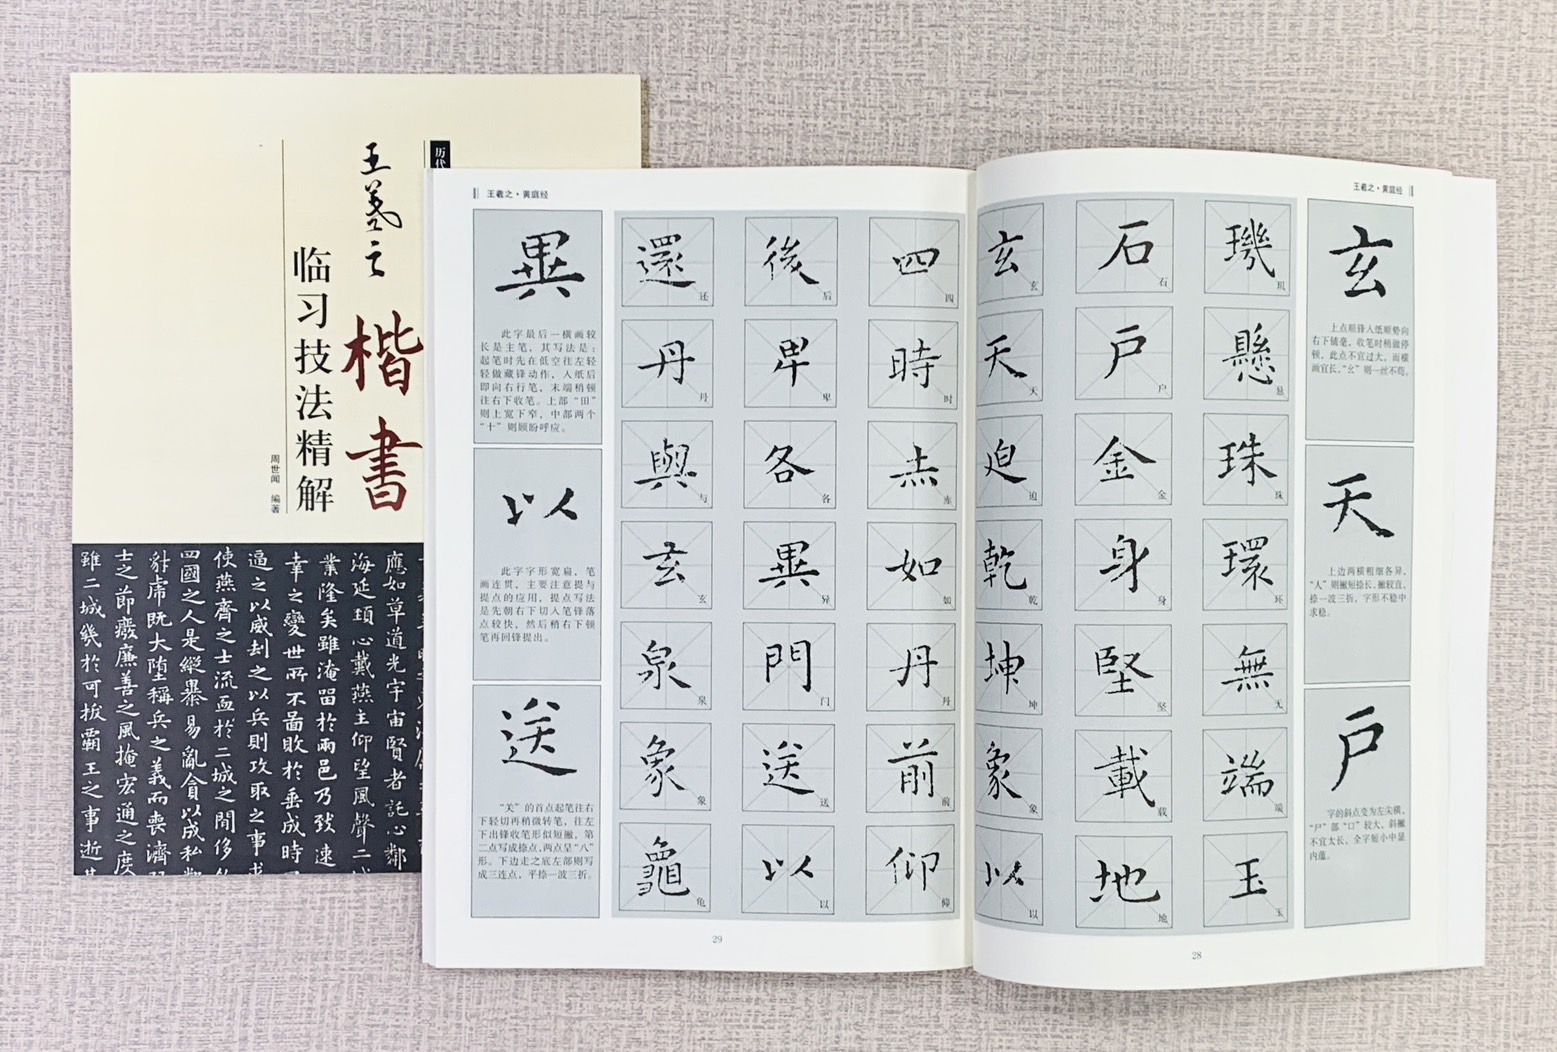 历代
王羲之
楷書
临习技法精解
周世闻 编著
應如草道光宇宙賢者託心鄰
海延頸心戴燕主仰望風聲二城
業隆矣雖淹留於兩邑乃致速
幸之變世所不啚敗於垂成時
逼之以威刦之以兵則攻取之事求
使燕齊之士流血於二城之閒侈
四國之人是縱暴易亂貪以成私鄰
豺虎既大墮稱兵之義而喪濟
士之節癈廉善之風掩宏通之度
雖二城幾於可拔霸王之事逝其
王羲之·黄庭经
玄
上点顺锋入纸顺势向
右下铺毫，收笔时稍做停
顿，此点不宜过大，而横
画宜长，“玄”则一丝不苟。
天
上边两横粗细各异，
“人”则撇短捺长，撇较直，
捺一波三折，字形不稳中
求稳。
戶
字的斜点变为左尖横，
“尸”部“口”较大，斜撇
不宜太长，全字短小中显
内蕴。
璣 玑
懸 悬
珠 珠
環 环
無 无
端 端
玉 玉
石 石
戶 户
金 金
身 身
堅 坚
載 载
地 地
玄 玄
天 天
迫 迫
乾 乾
坤 坤
象 象
以 以
28
王羲之·黄庭经
四 四
時 时
赤 赤
如 如
丹 丹
前 前
仰 仰
後 后
卑 卑
各 各
異 异
門 门
送 送
以 以
還 还
丹 丹
與 与
玄 玄
泉 泉
象 象
龜 龟
異
此字最后一横画较
长是主笔，其写法是：
起笔时先在低空往左轻
轻做藏锋动作，入纸后
即向右行笔，末端稍顿
往右下收笔。上部“田”
则上宽下窄，中部两个
“十”则顾盼呼应。
以
此字字形宽扁，笔
画连贯，主要注意提与
提点的应用，提点写法
是先朝右下切入笔锋落
点较快，然后稍右下顿
笔再回锋提出。
送
“关”的首点起笔往右
下轻切再稍微转笔，往左
下出锋收笔形似短撇，第
二点写成捺点，两点呈“八”
形。下边走之底左部则写
成三连点，平捺一波三折。
29